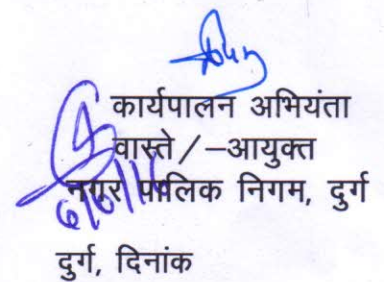 कार्यपालन अभियंता
वास्ते/–आयुक्त
नगर पालिक निगम, दुर्ग
दुर्ग, दिनांक